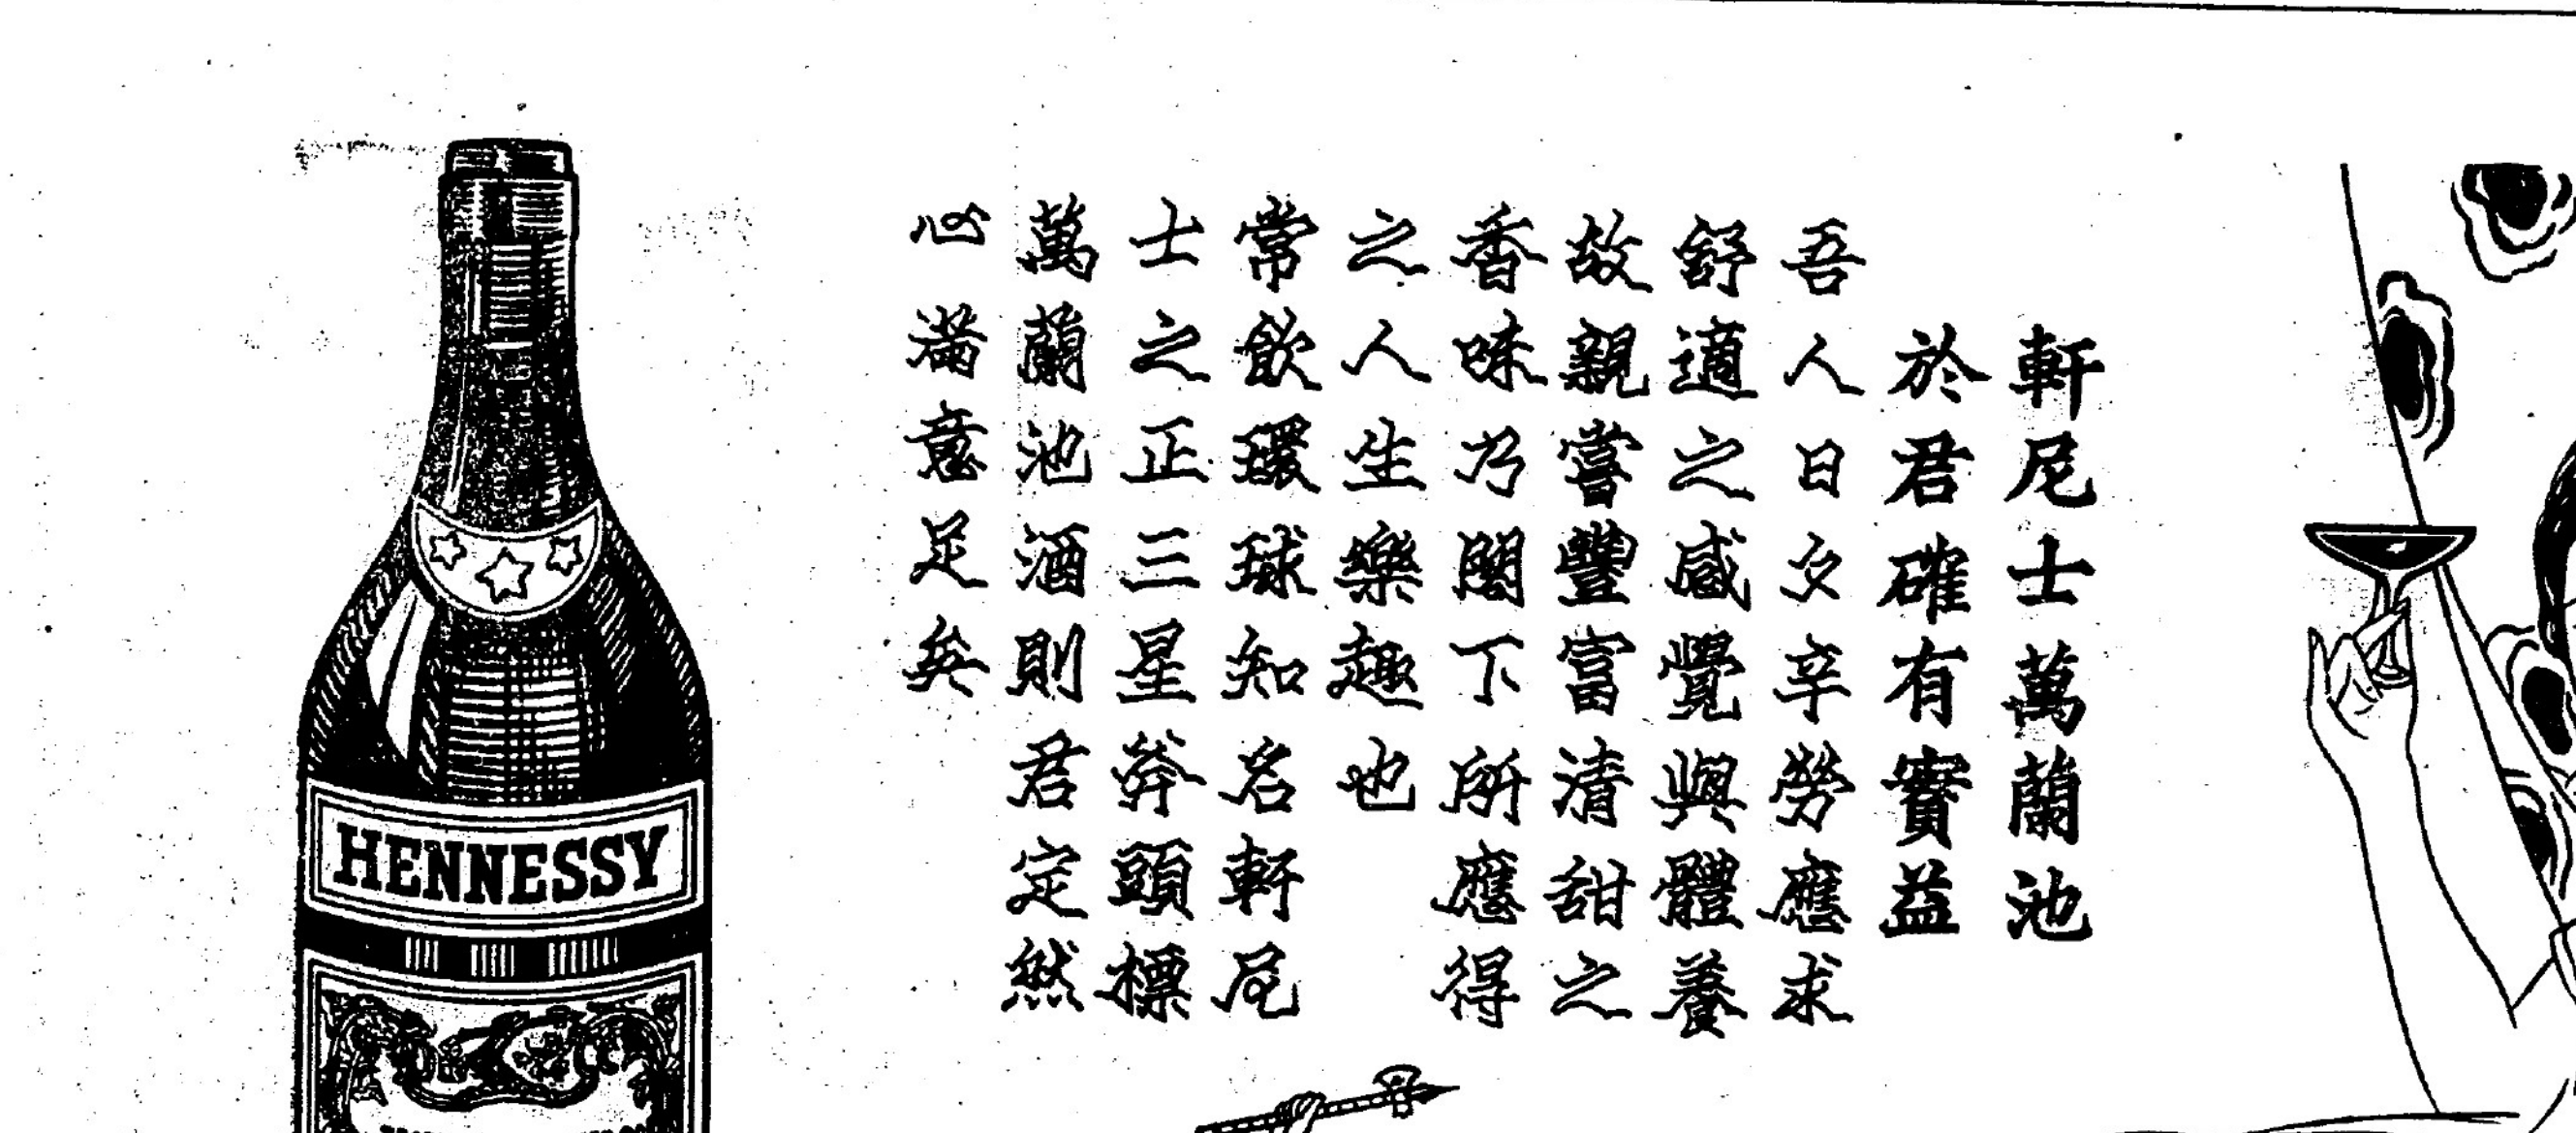 軒尼士萬蘭池
於君確有實益
吾人日夕辛勞應求
舒適之感覺與體養
故親嘗豐富清甜之
香味乃閣下所應得
之人生樂趣也
常飲環球知名軒尼
士之正三星斧頭標
萬蘭池酒則君定然
心滿意足矣
HENNESSY